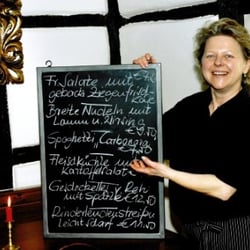 Fr. Salate mit
geback. Ziegenfrisch-
Käse
Breite Nudeln mit
Lamm u.
Spaghetti "Carbonara"
Fleischküchle mit
Kartoffelsalat
v. Reh
mit Spätzle € 12.50
Rinderlendenstreifen
leicht scharf €